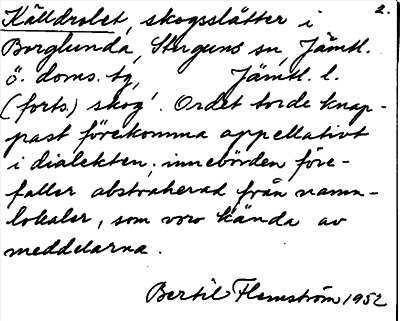 Källdrolet, skogsslåtter i 2.
Borglunda, Stuguns sn, Jämtl.
ö. doms. tg, Jämtl. l.
(forts.) skog'. Ordet torde knap-
past förekomma appellativt
i dialekten; innebörden före-
faller abstraherad från namn-
lokaler, som voro kända av
meddelarna.
Bertil Flemström 1952